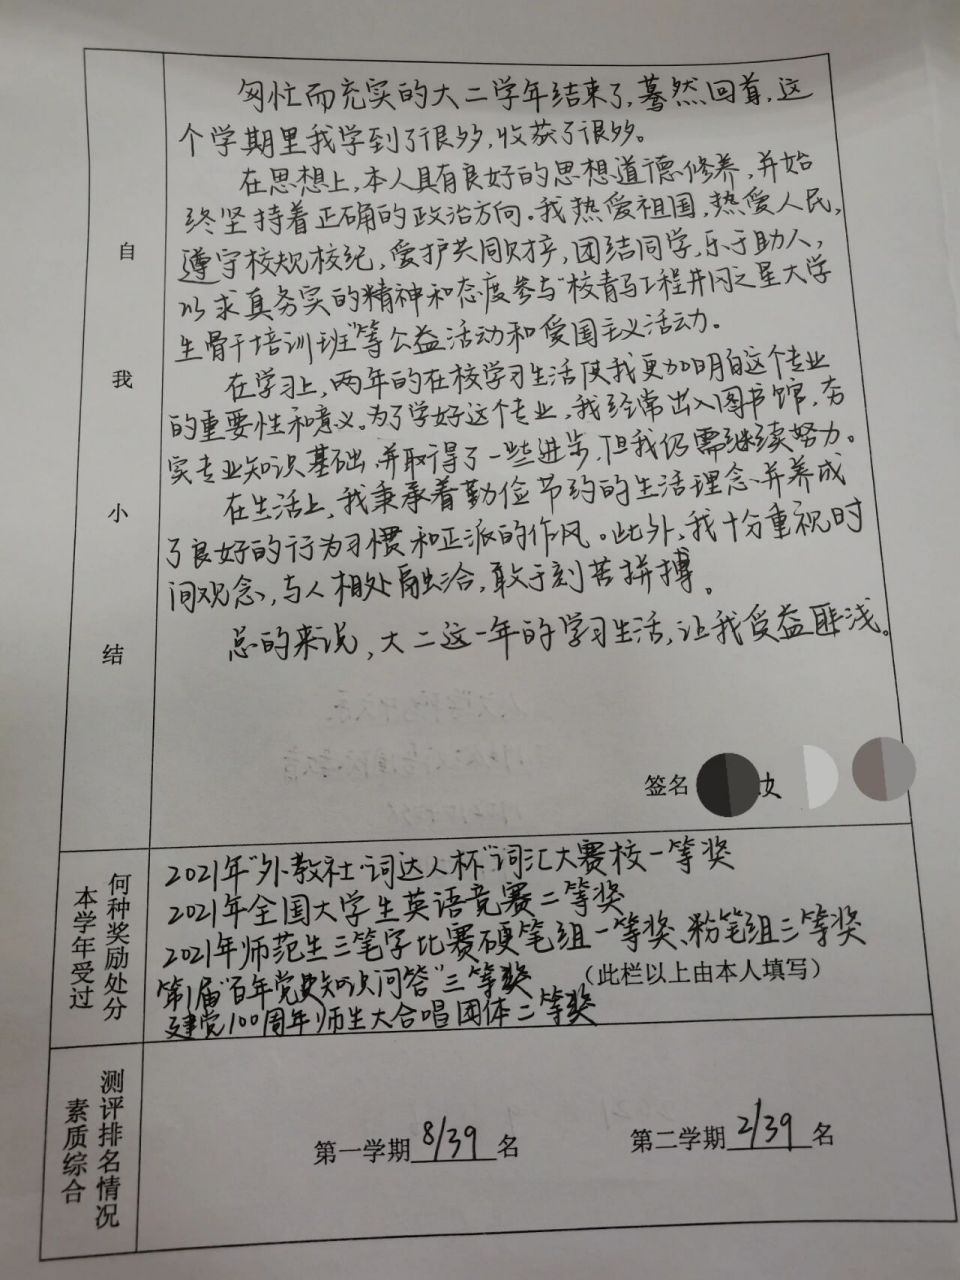 自我小结
匆忙而充实的大二学年结束了，蓦然回首，这
个学期里我学到了很多，收获了很多。
在思想上，本人具有良好的思想道德修养，并始
终坚持着正确的政治方向。我热爱祖国，热爱人民，
遵守校规校纪，爱护共同财产，团结同学，乐于助人，
以求真务实的精神和态度参与"校青马工程井冈之星大学
生骨干培训班"等公益活动和爱国主义活动。
在学习上，两年的在校学习生活使我更加明白这个专业
的重要性和意义。为了学好这个专业，我经常出入图书馆，夯
实专业知识基础，并取得了一些进步，但我仍需继续努力。
在生活上，我秉承着勤俭节约的生活理念，并养成
了良好的行为习惯和正派的作风。此外，我十分重视时
间观念，与人相处融洽，敢于刻苦拼搏。
总的来说，大二这一年的学习生活，让我受益匪浅。
签名
本学年受过何种奖励处分
2021年"外教社·词达人杯"词汇大赛校一等奖
2021年全国大学生英语竞赛二等奖
2021年师范生三笔字比赛硬笔组一等奖、粉笔组三等奖
第1届"百年党史知识点问答"三等奖 （此栏以上由本人填写）
建党100周年师生大合唱团体二等奖
素质综合测评排名情况
第一学期8/39名 第二学期2/39名